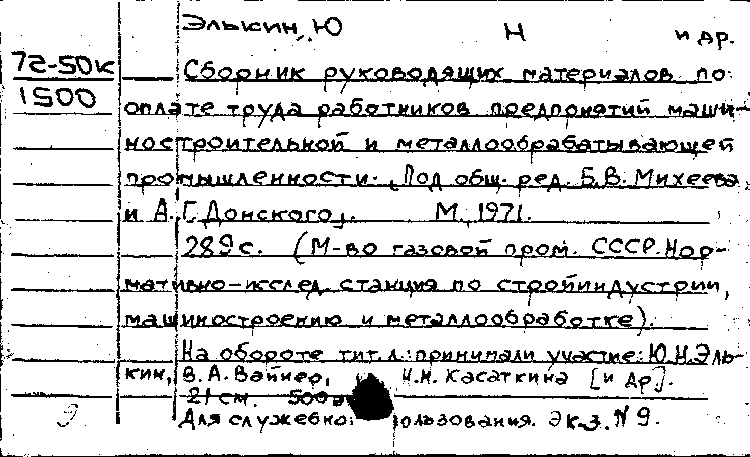 Элькин, Ю Н и др.
72-50к
1500
Сборник руководящих материалов по
оплате труда работников предприятий маши-
ностроительной и металлообрабатывающей
промышленности. [Под общ. ред. Б.В. Михеева
и А.Г. Донского]. М., 1971.
289 с. (М-во газовой пром. СССР. Нор-
мативно-исслед. станция по стройиндустрии,
машиностроению и металлообработке).
На обороте тит. л.: принимали участие: Ю.Н. Эль-
кин, В.А. Вайнер, Н.Н. Касаткина [и др].
21 см. 500
Для служебно ользования. Экз. № 9.